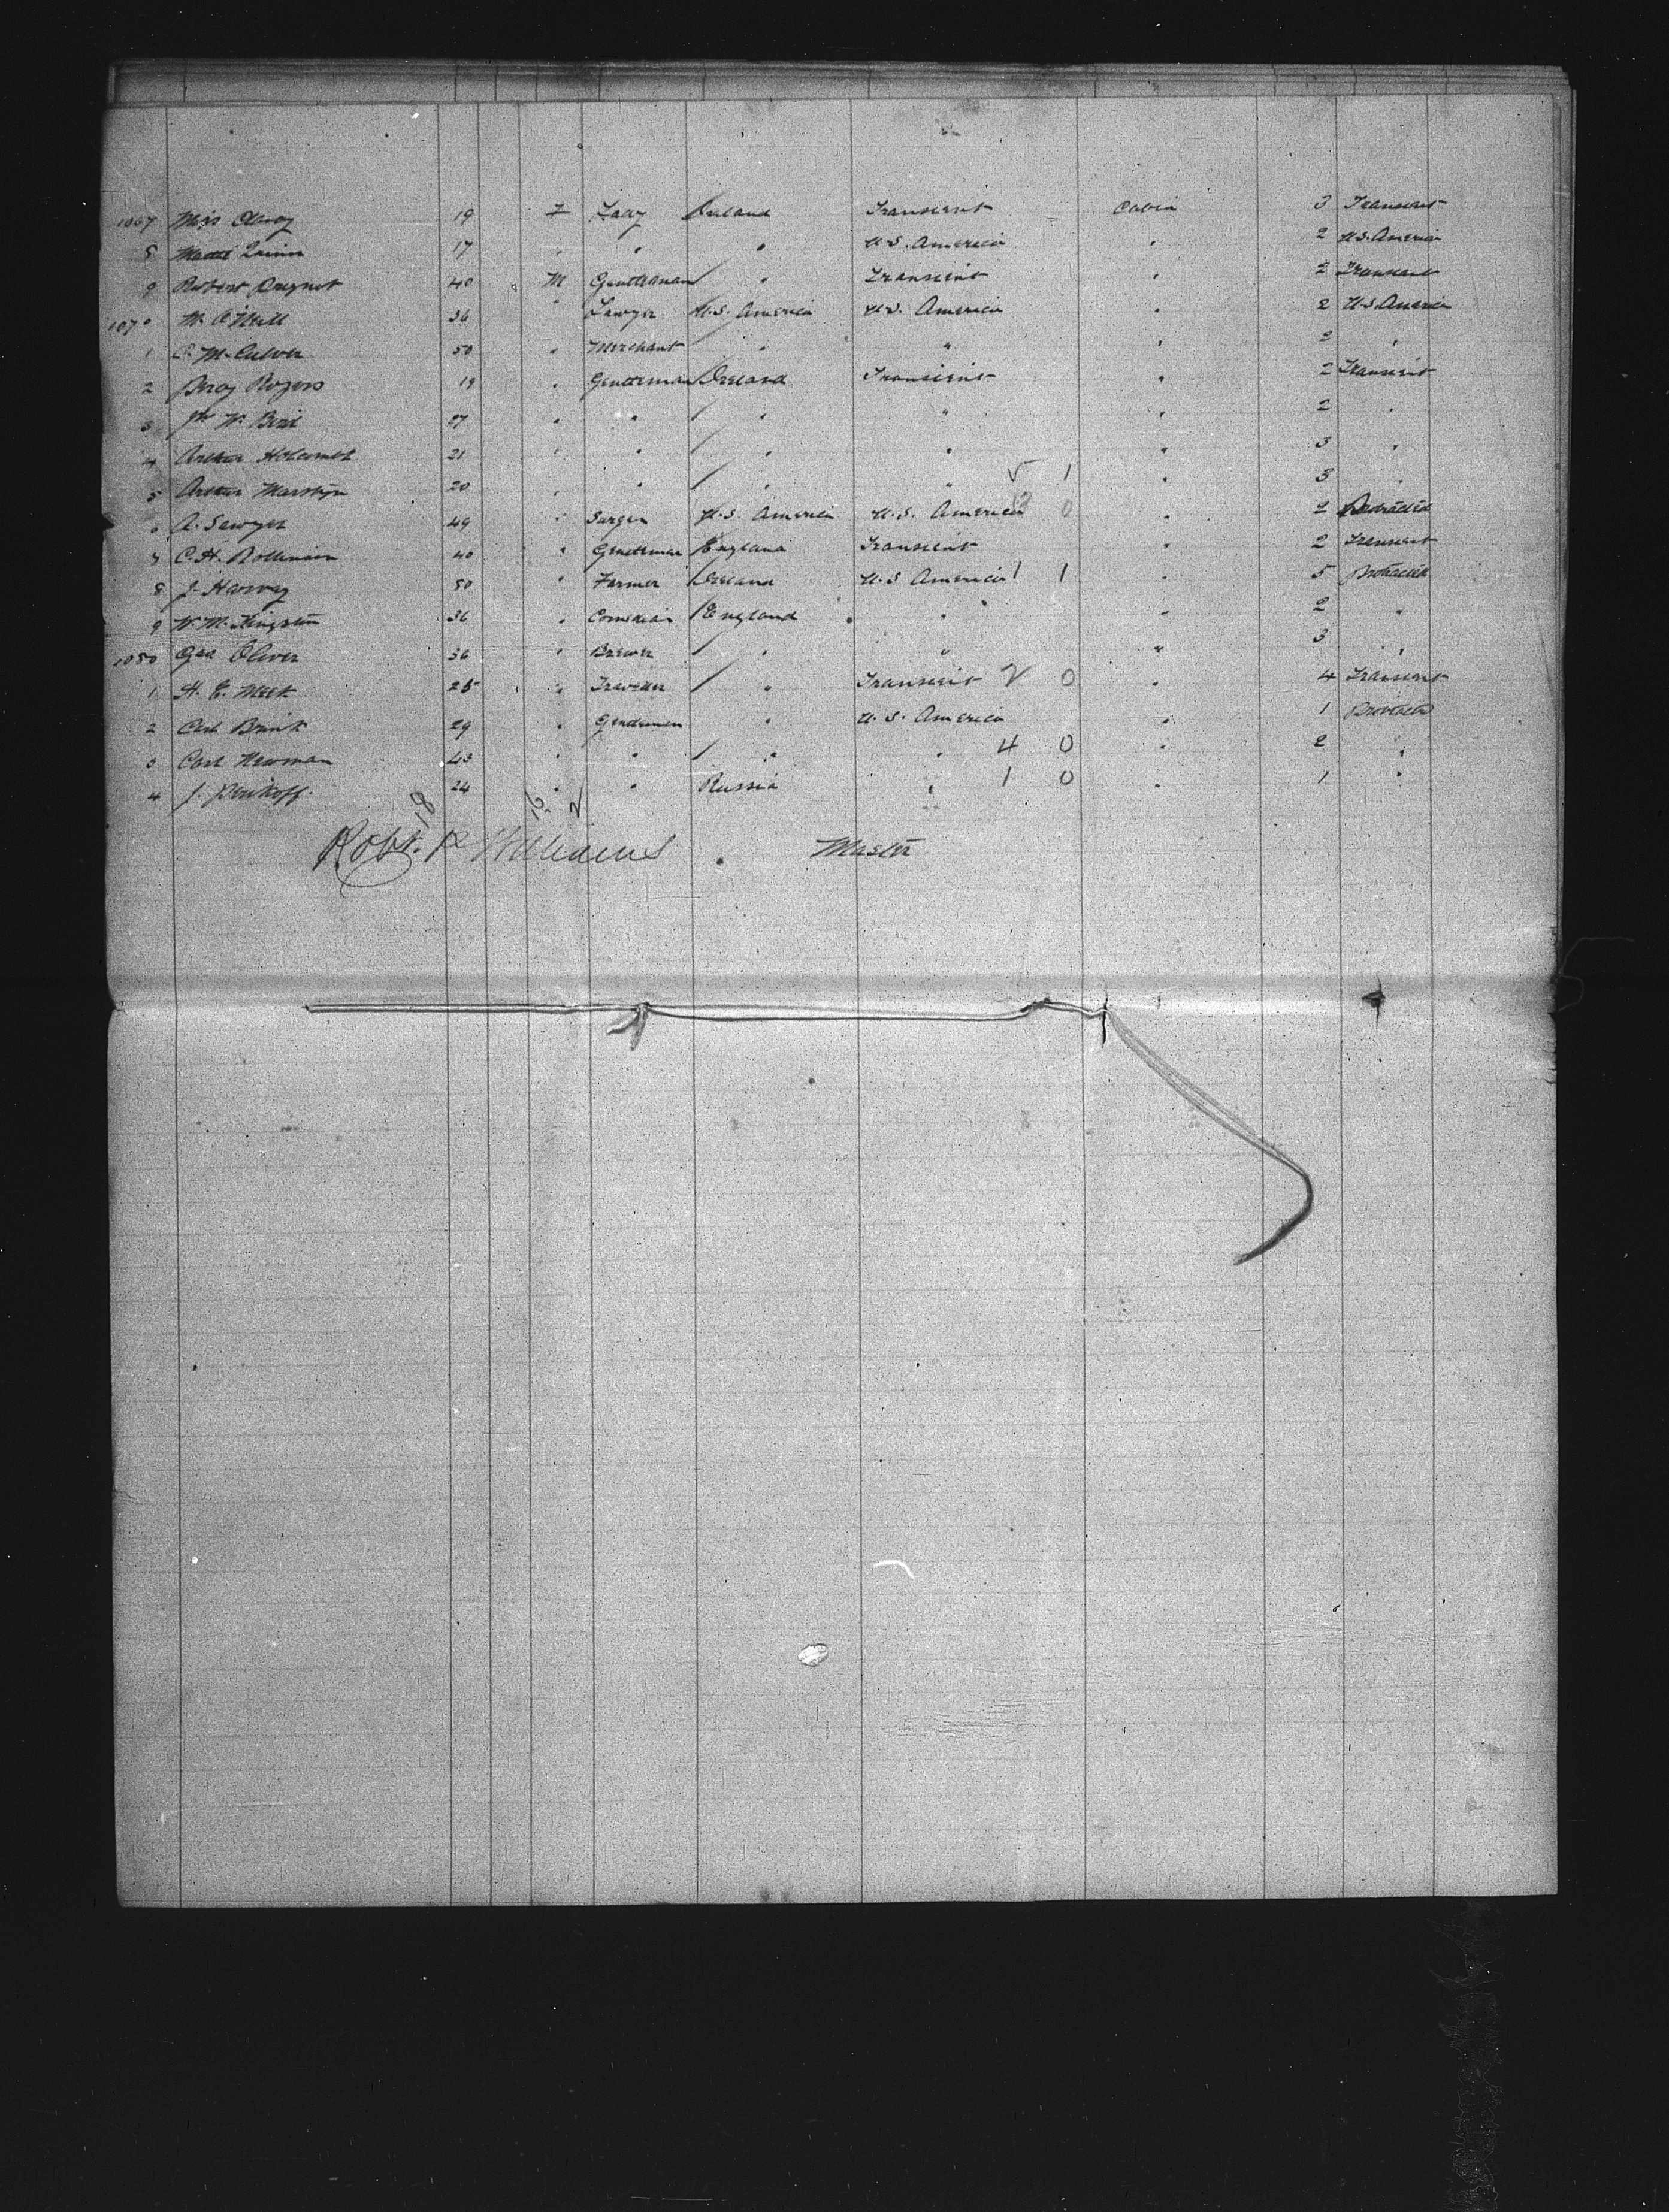 1067 Miss 19 F Lady Ireland Transient Cabin 3 Transient
8 Quinn 17 " " " U.S. America " 2 U.S. America
9 Robert 40 M Gentleman " Transient " 2 Transient
1070 M. O'Neill 36 " Lawyer U.S. America U.S. America " 2 U.S. America
1 C. M. Culver 50 " Merchant " " " 2 "
2 Percy Rogers 19 " Gentleman Ireland Transient " 2 Transient
3 W. Bird 27 " " " " " 2 "
4 Arthur 21 " " " " " 3 "
5 Arthur 20 " " " " 5 1 " 3 "
6 A. Sawyer 49 " U.S. America U.S. America 0 " 2 Protracted
7 C. H. 40 " Gentleman England Transient " 2 Transient
8 J. Harvey 50 " Farmer Ireland U.S. America 1 1 " 5 Protracted
9 W. M. Kingston 36 " Comedian England " " 2 "
1080 Geo Oliver 36 " Brewer " " " 3 "
1 H. E. Meek 25 " Traveller " Transient 2 0 " 4 Transient
2 Carl Brink 29 " Gentleman " U.S. America " 1 Protracted
3 Carl Newman 43 " " " " 4 0 " 2 "
4 J. 24 " " Russia " 1 0 " 1 "
18 16 2
Robt. R Williams . Master